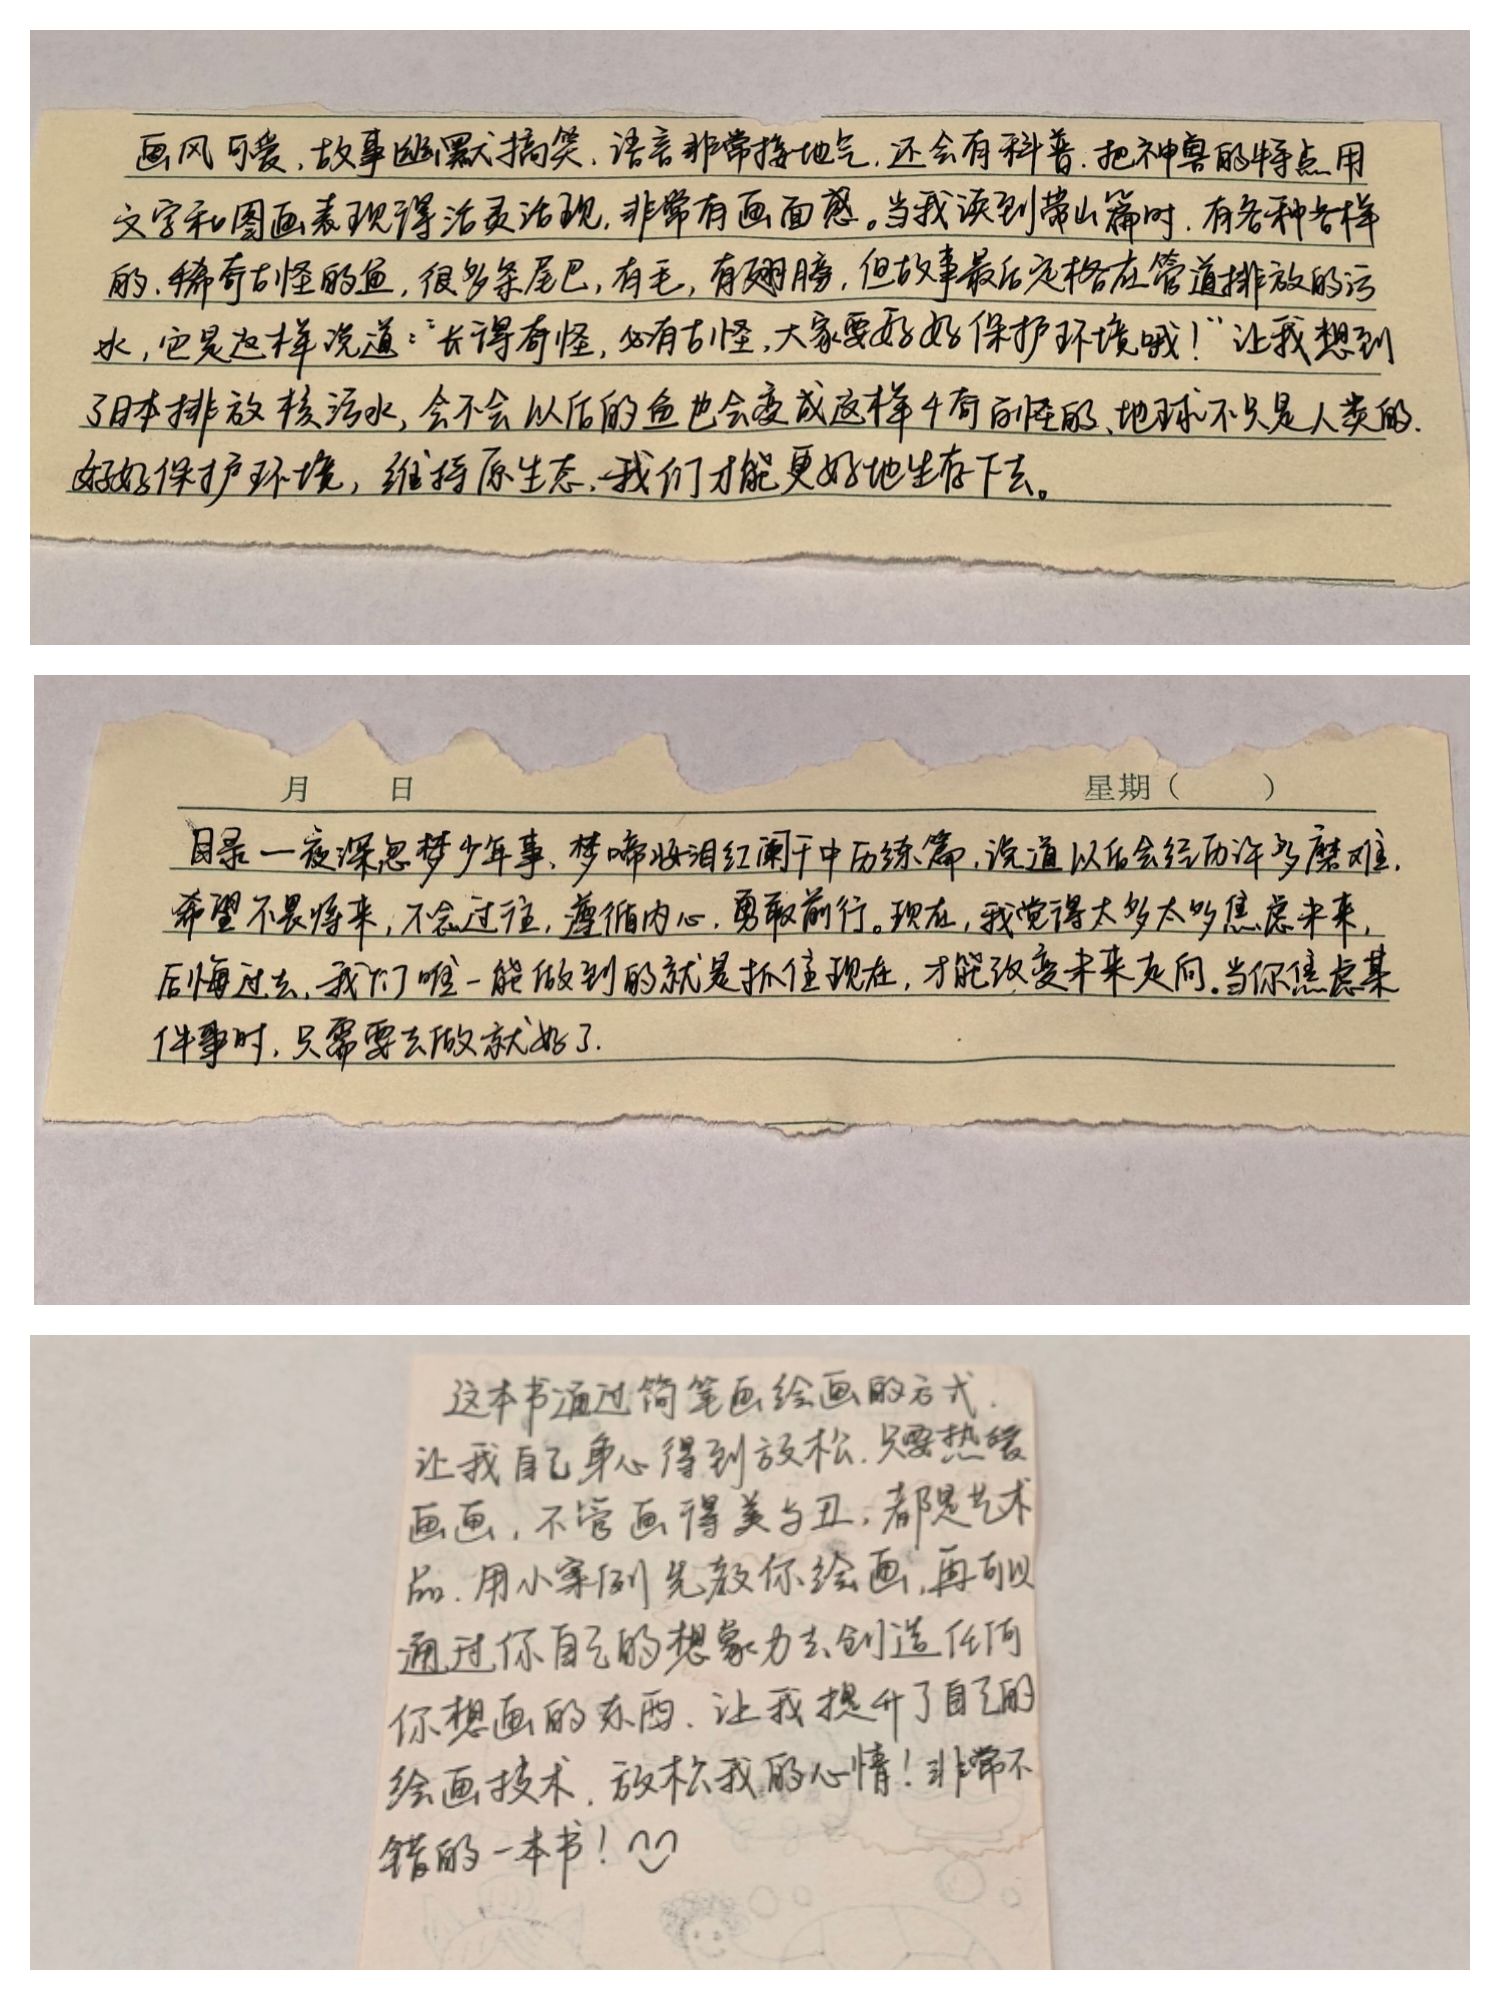 画风可爱，故事幽默搞笑，语言非常接地气，还会有科普，把神兽的特点用
文字和图画表现得活灵活现，非常有画面感。当我读到带山篇时，有各种各样
的、稀奇古怪的鱼，很多条尾巴，有毛，有翅膀，但故事最后定格在管道排放的污
水，它是这样说道：“长得奇怪，必有古怪，大家要好好保护环境哦！”让我想到
了日本排放核污水，会不会以后的鱼也会变成这样千奇百怪的、地球不只是人类的，
好好保护环境，维持原生态，我们才能更好地生存下去。
月 日 星期（ ）
目录一夜深忽梦少年事，梦啼妆泪红阑干中历练篇，说道以后会经历许多磨难，
希望不畏将来，不念过往，遵循内心，勇敢前行。现在，我觉得太多太多焦虑未来，
后悔过去，我们唯一能做到的就是抓住现在，才能改变未来走向。当你焦虑某
件事时，只需要去做就好了.
这本书通过简笔画绘画的方式，
让我自己身心得到放松，只要热爱
画画，不管画得美与丑，都是艺术
品. 用小案例先教你绘画，再可以
通过你自己的想象力去创造任何
你想画的东西，让我提升了自己的
绘画技术，放松我的心情！非常不
错的一本书！